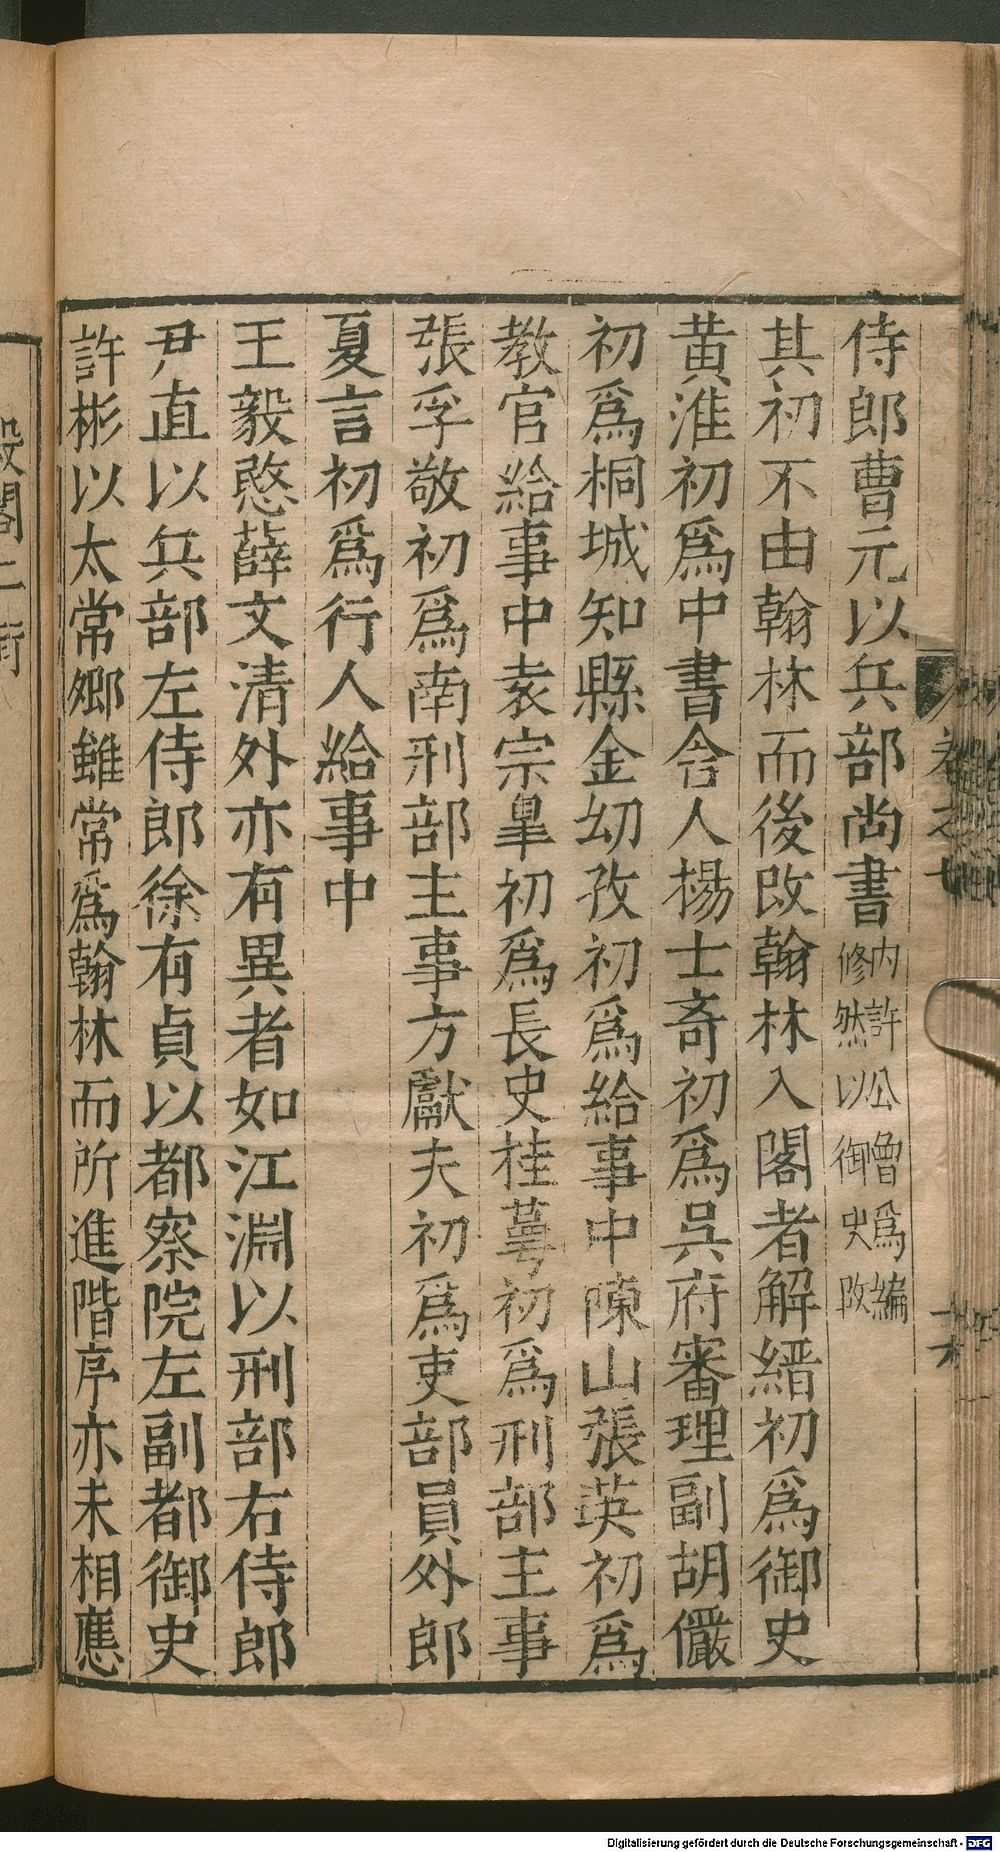 侍郎曹元以兵部尚書内許公魯爲編修然以御史改
其初不由翰林而後改翰林入閣者解縉初爲御史
黄淮初爲中書舎人楊士奇初爲吳府審理副胡儼
初爲桐城知縣金幼孜初爲給事中陳山張英初爲
教官給事中袁宗臯初爲長史桂萼初爲刑部主事
張孚敬初爲南刑部主事方獻夫初爲吏部員外郎
夏言初爲行人給事中
王毅愍薛文清外亦有異者如江淵以刑部右侍郎
尹直以兵部左侍郎徐有貞以都察院左副都御史
許彬以太常卿雖常爲翰林而所進階序亦未相應
殿閣
Digitalisierung gefördert durch die Deutsche Forschungsgemeinschaft - DFG